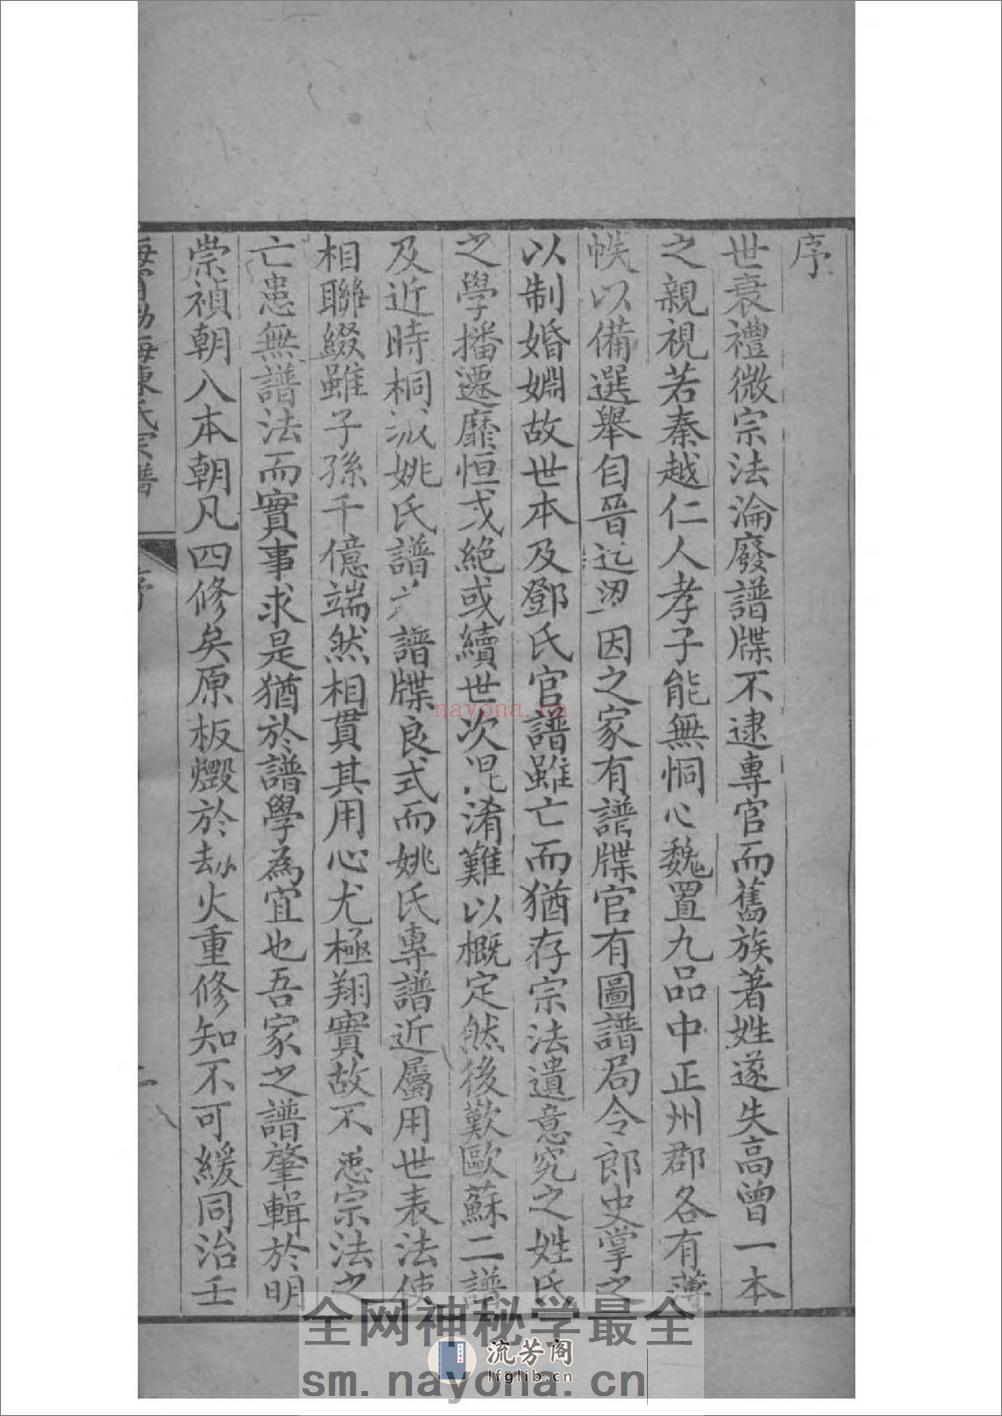 序
世衰禮微宗法淪廢譜牒不逮專官而舊族著姓遂失高曾一本
之親視若秦越仁人孝子能無恫心魏置九品中正州郡各有薄
帙以備選舉自晉迄因之家有譜牒官有圖譜局令郎史掌之
以制婚婣故世本及鄧氏官譜雖亡而猶存宗法遺意究之姓氏
之學播遷靡恒或絶或續世次混淆難以概定然後歎歐蘇二譜
及近時桐城姚氏譜譜牒良式而姚氏專譜近屬用世表法使
相聯綴雖子孫千億端然相貫其用心尤極翔實故不患宗法之
亡患無譜法而實事求是猶於譜學為宜也吾家之譜肇輯於明
崇禎朝入本朝凡四修矣原板燬於劫火重修知不可緩同治壬
海寧渤海陳氏宗譜
序
一
nayona.cn
全网神秘学最全
流芳阁
lfglib.cn
sm.nayona.cn